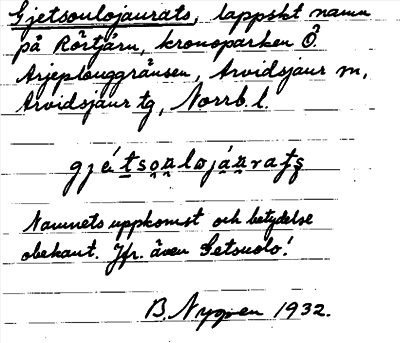 Gjetsoulojaurats, lappskt namn
på Rörtjärn, kronoparken Ö.
Arjeplouggränsen, Arvidsjaur sn,
Arvidsjaur tg, Norrb. l.
gjétsou̯lojáu̯rats
Namnets uppkomst och betydelse
obekant. Jfr. även Getsuolo!
B. Nygren 1932.